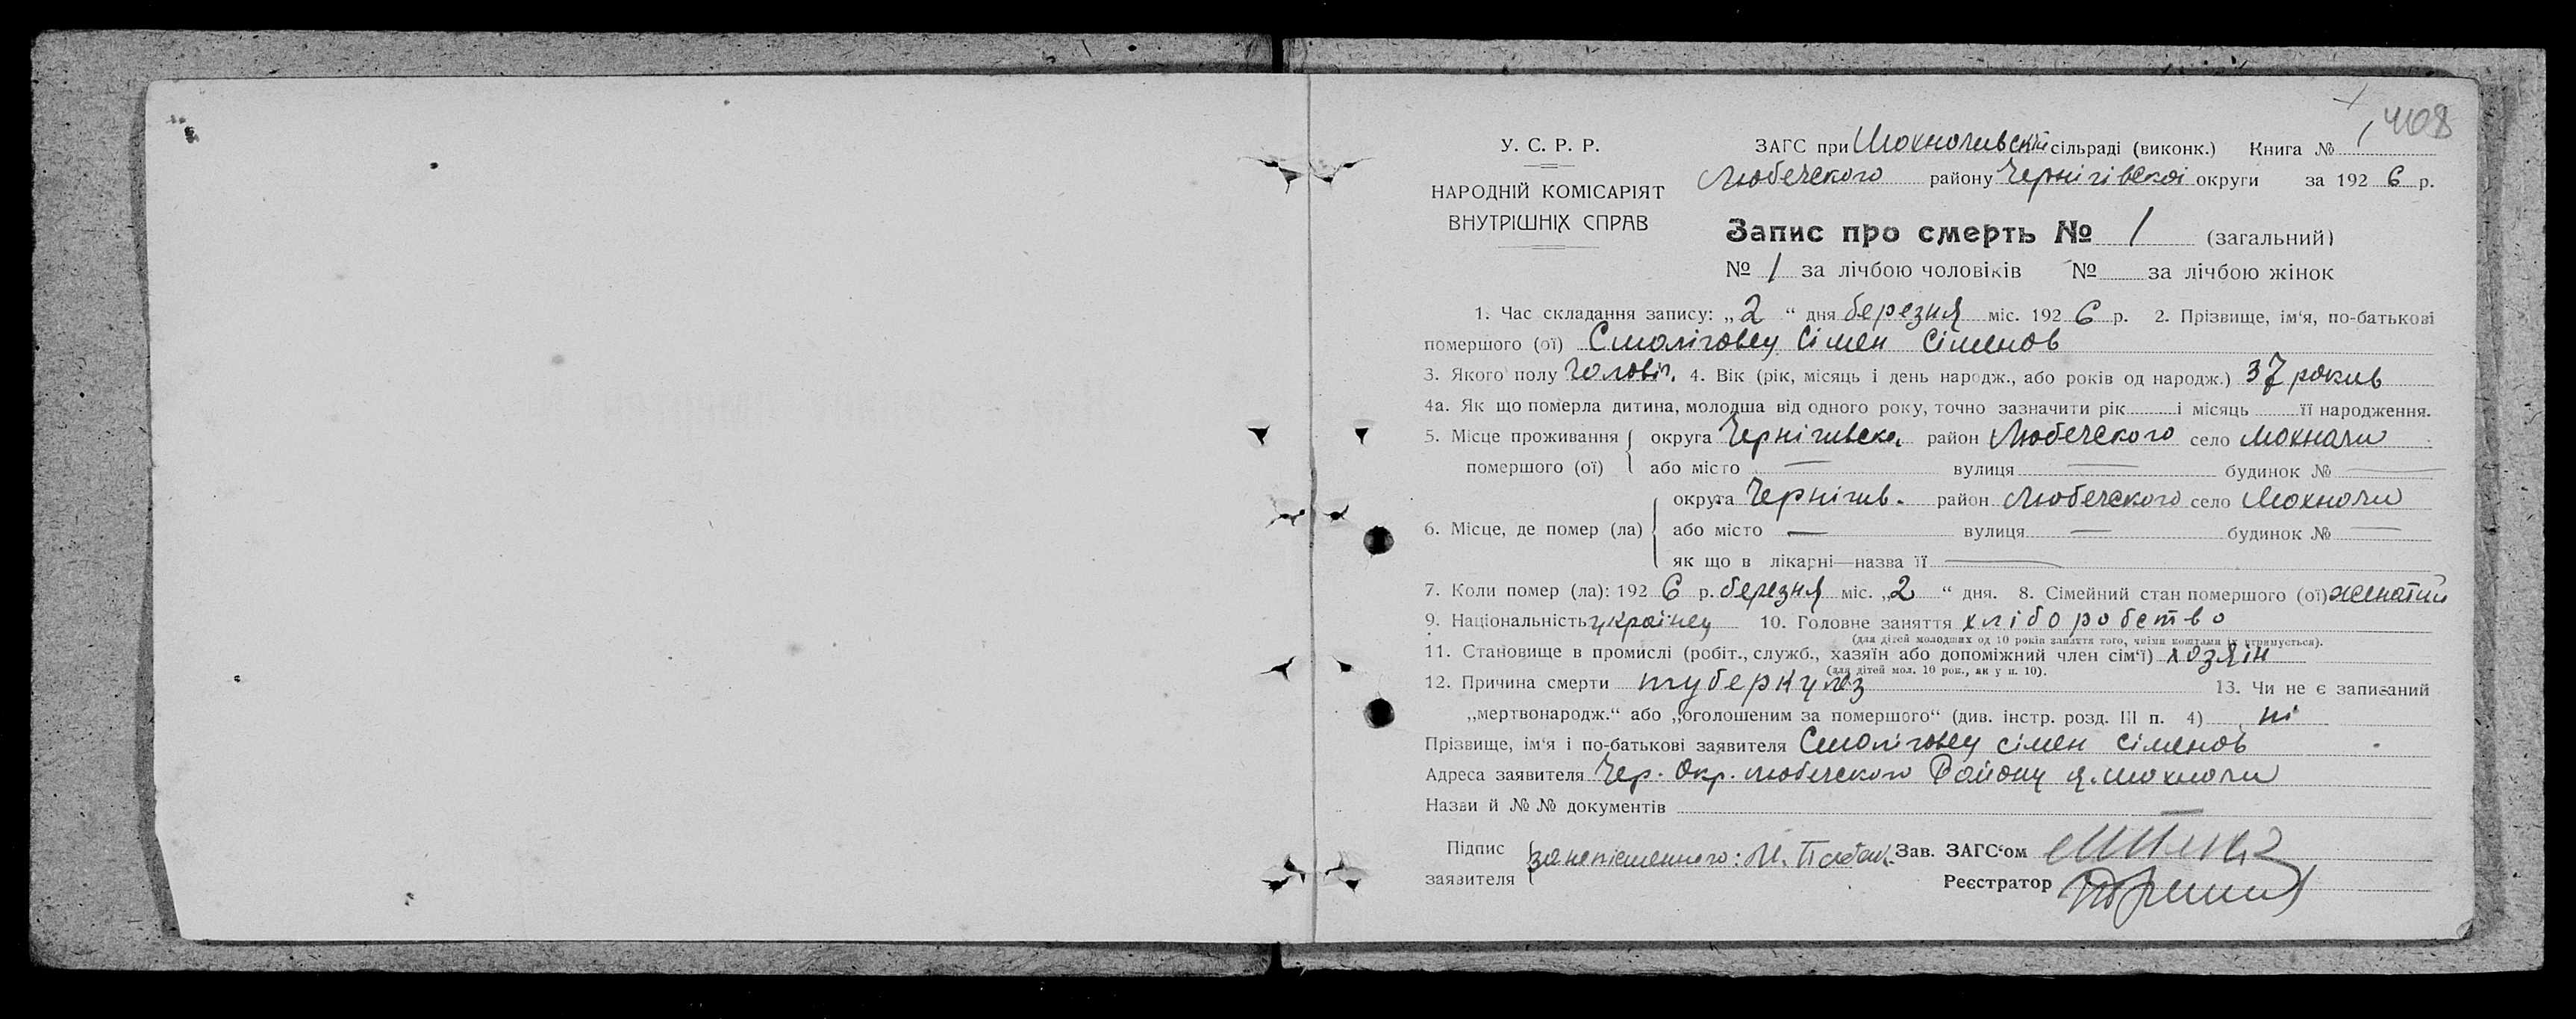 408
У. С. Р. Р.
НАРОДНІЙ КОМІСАРІЯТ
ВНУТРІШНІХ СПРАВ
ЗАГС при Мохначивскій сільраді (виконк.) Книга № 1
Любечского району Чернігівскоі округи за 1926 р.
Запис про смерть № 1 (загальний)
№ 1 за лічбою чоловіків № за лічбою жінок
1. Час складання запису: „2“ дня березня міс. 1926 р. 2. Прізвище, ім‘я, по-батькові
помершого (ої) Смоліговец Сімен Сіменов
3. Якого полу чоловіч. 4. Вік (рік, місяць і день народж., або років од народж.) 37 рокив
4а. Як що померла дитина, молодша від одного року, точно зазначити рік і місяць її народження.
5. Місце проживання помершого (ої) округа Чернігивска район Любечского село Мохначи
або місто — вулиця — будинок № —
6. Місце, де помер (ла) округа Чернігив. район Любечского село Мохначи
або місто — вулиця — будинок № —
як що в лікарні—назва її —
7. Коли помер (ла): 1926 р. березня міс. „2“ дня. 8. Сімейний стан помершого (ої) женатий
9. Національність украінец 10. Головне заняття хліборобство
(для дітей молодших од 10 років заняття того, чиїми коштами їх утримується).
11. Становище в промислі (робіт., служб., хазяїн або допоміжний член сім‘ї) хозяін
(для дітей мол. 10 рок., як у п. 10).
12. Причина смерти туберкулёз 13. Чи не є записаний
„мертвонародж.“ або „оголошеним за помершого“ (див. інстр. розд. III п. 4) ні
Прізвище, ім‘я і по-батькові заявителя Смоліговец Сімен Сіменов
Адреса заявителя Чер. Окр. Любечского Району с. Мохначи
Назви й № № документів
Підпис заявителя за неписменного: Зав. ЗАГС‘ом
Реєстратор